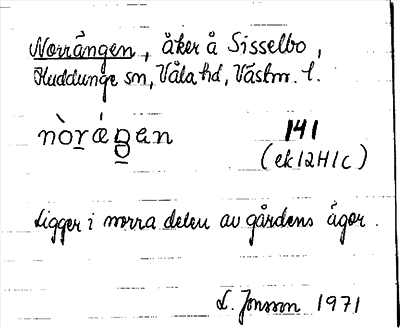 Norrängen, åker å Sisselbo,
Huddunge sn, Våla hd, Västm. l.
nòrǽŋan 141
(ek 12H1c)
Ligger i norra delen av gårdens ägor.
L. Jonsson 1971